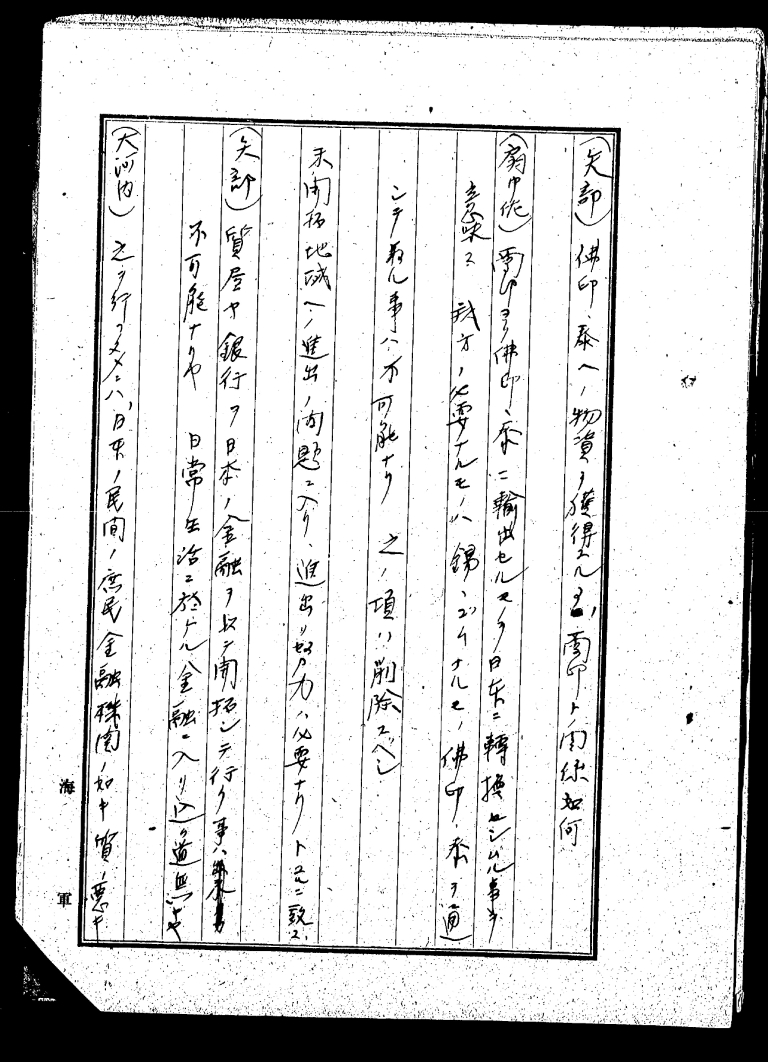 (矢部) 佛印、泰ヘノ物資ヲ獲得スル 蘭印トノ関係如何
蘭印ヨリ佛印、泰ニ輸出セルモノヲ日本ニ轉換セシムル事ヲ
意味ス 我方ノ必要ナルモノハ錫、ゴムナルモ、佛印、泰ヲ通
シテ 事ハ不可能ナリ 之ノ項ハ削除スベシ
未開拓地域ヘノ進出ノ問題ニ入リ、進出ノ努力ハ必要ナリト 一致ス
(矢部) 質屋ヤ銀行ヲ日本ノ金融ヲ以テ開拓シテ行ク事ハ
不可能ナリヤ 日常生活ニ於ケル金融ニ入リ込ム道無キヤ
(大河内) 之ヲ行フタメニハ、日本ノ民間ノ庶民金融機関ノ如キ質ノ悪キ
海軍